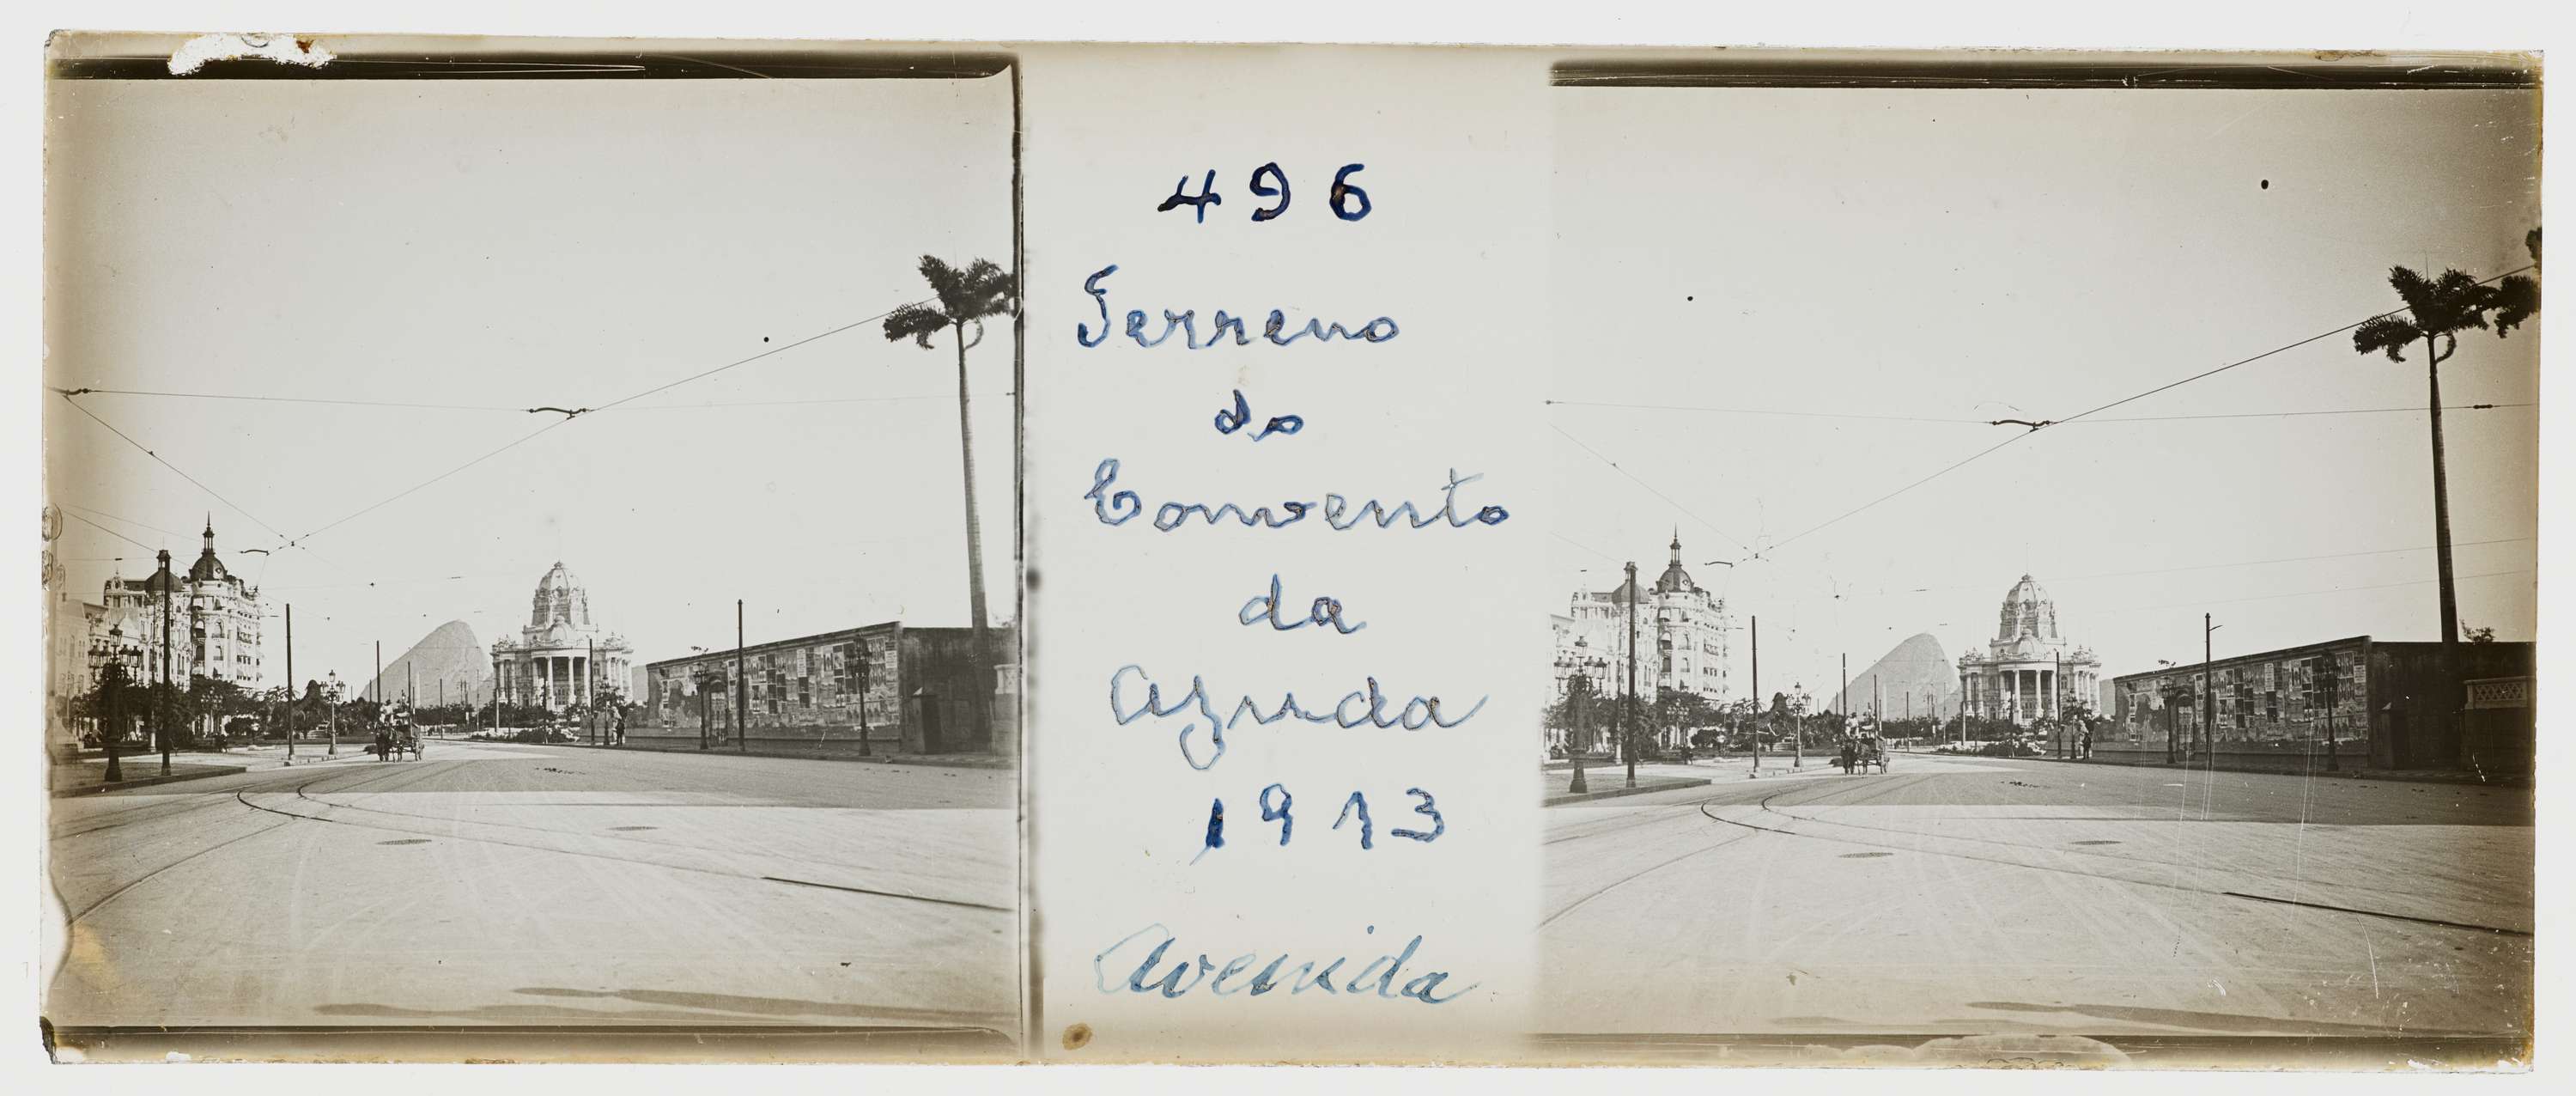 496
Terreno
do
Convento
da
Ajuda
1913
Avenida